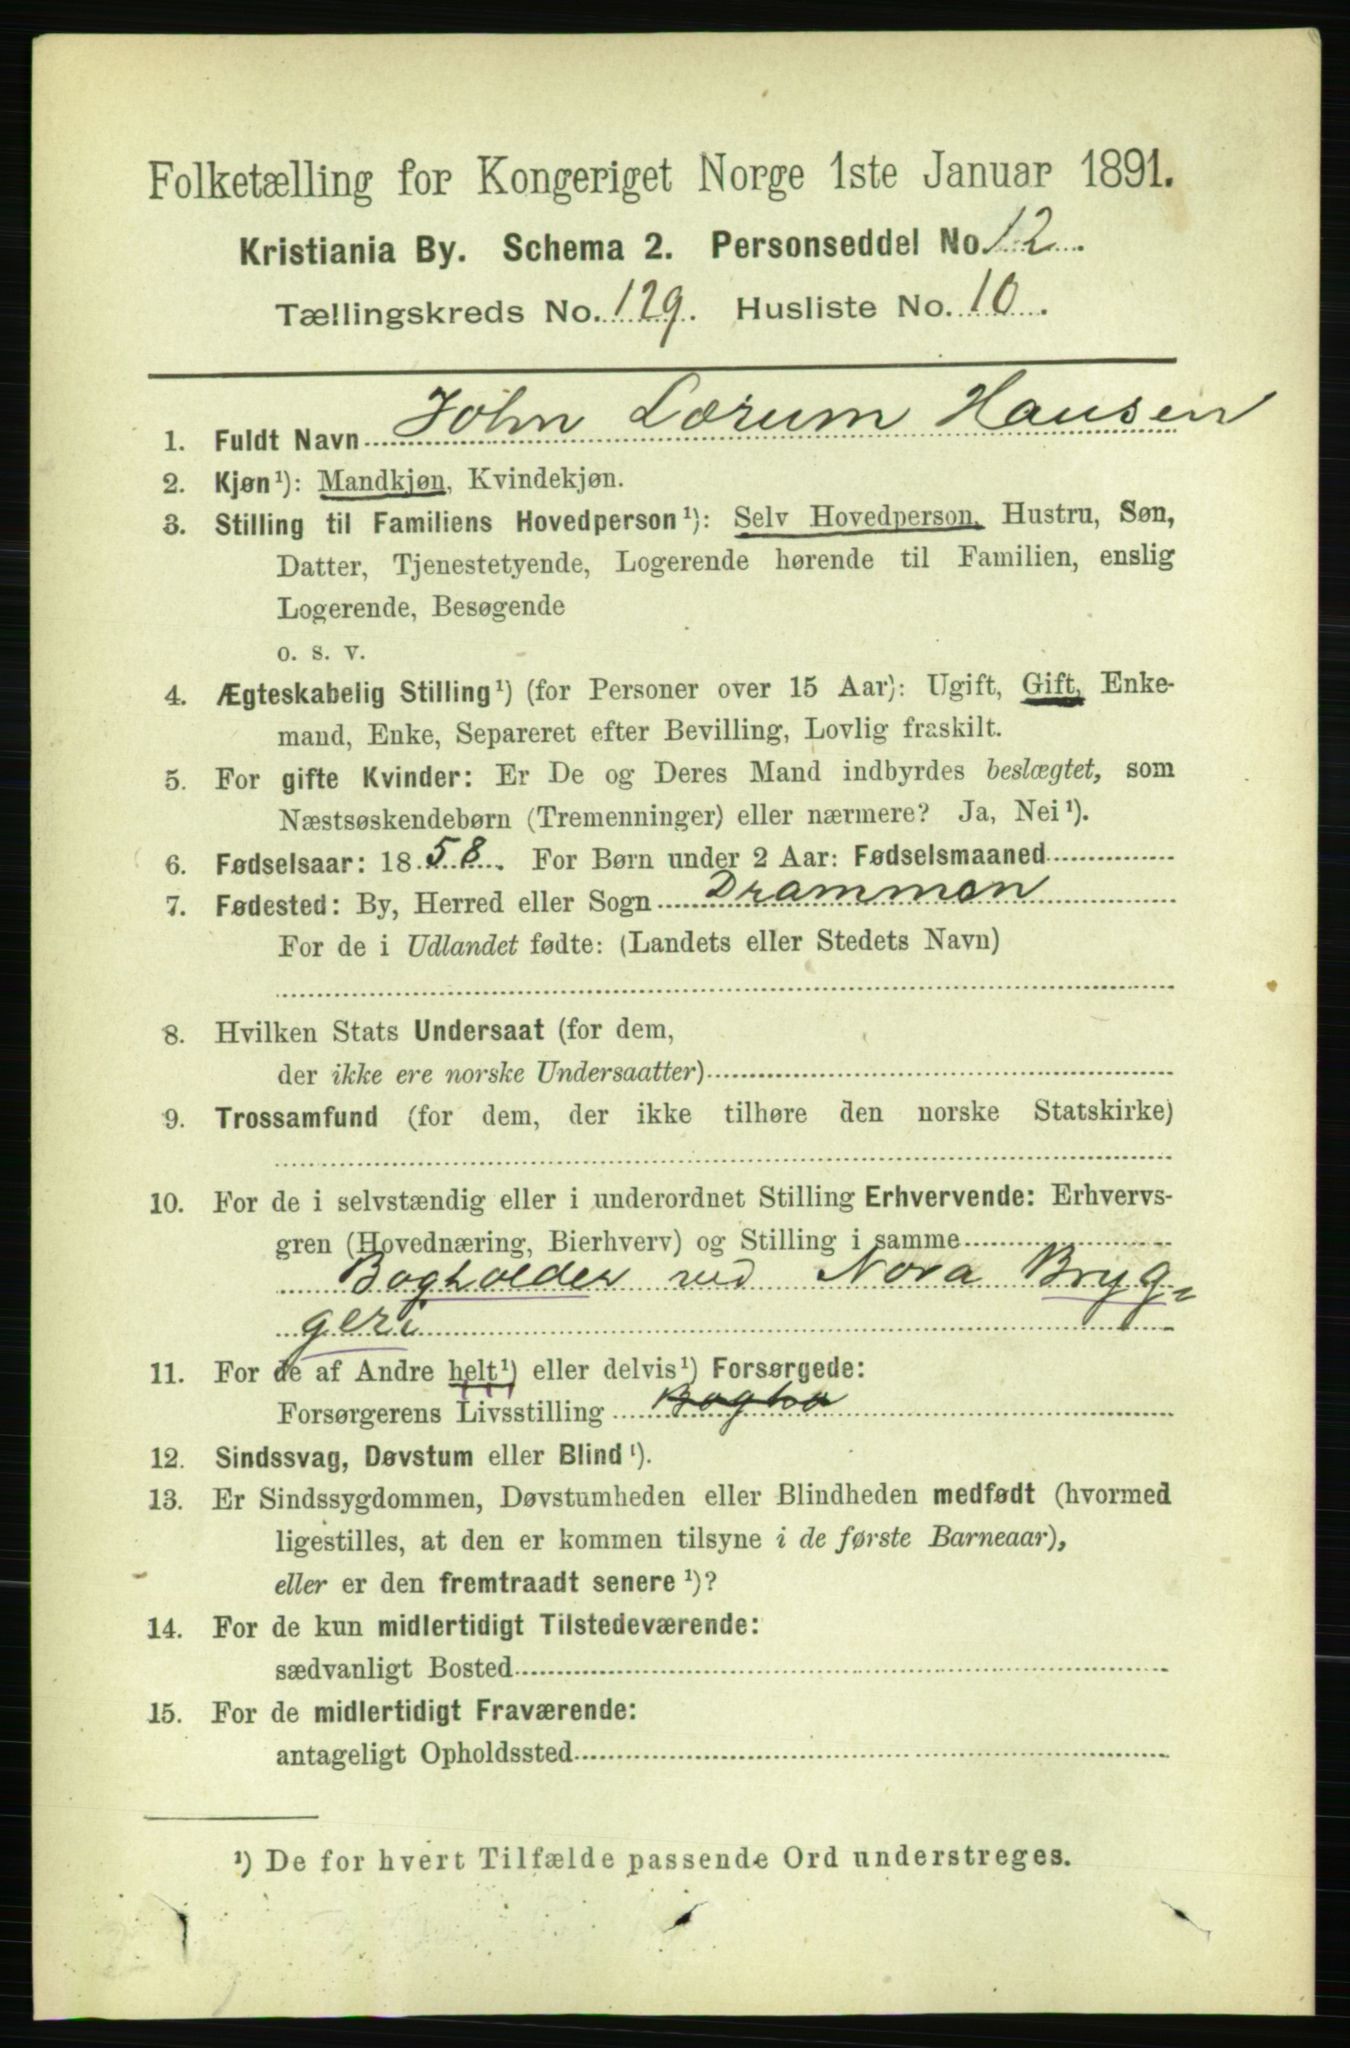 Folketælling for Kongeriget Norge 1ste Januar 1891.
Kristiania By. Schema 2. Personseddel No. 12.
Tællingskreds No. 129. Husliste No. 10.
1. Fuldt Navn John Lærum Hansen
2. Kjøn¹): Mandkjøn, Kvindekjøn.
3. Stilling til Familiens Hovedperson¹): Selv Hovedperson, Hustru, Søn,
Datter, Tjenestetyende, Logerende hørende til Familien, enslig
Logerende, Besøgende
o. s. v.
4. Ægteskabelig Stilling¹) (for Personer over 15 Aar): Ugift, Gift, Enke-
mand, Enke, Separeret efter Bevilling, Lovlig fraskilt.
5. For gifte Kvinder: Er De og Deres Mand indbyrdes beslægtet, som
Næstsøskendebørn (Tremenninger) eller nærmere? Ja, Nei¹).
6. Fødselsaar: 1858. For Børn under 2 Aar: Fødselsmaaned
7. Fødested: By, Herred eller Sogn Drammen
For de i Udlandet fødte: (Landets eller Stedets Navn)
8. Hvilken Stats Undersaat (for dem,
der ikke ere norske Undersaatter)
9. Trossamfund (for dem, der ikke tilhøre den norske Statskirke)
10. For de i selvstændig eller i underordnet Stilling Erhvervende: Erhvervs-
gren (Hovednæring, Bierhverv) og Stilling i samme
Bogholder ved Nora Bryg=
geri
11. For de af Andre helt¹) eller delvis¹) Forsørgede:
Forsørgerens Livsstilling Bogho
12. Sindssvag, Døvstum eller Blind¹).
13. Er Sindssygdommen, Døvstumheden eller Blindheden medfødt (hvormed
ligestilles, at den er kommen tilsyne i de første Barneaar),
eller er den fremtraadt senere¹)?
14. For de kun midlertidigt Tilstedeværende:
sædvanligt Bosted
15. For de midlertidigt Fraværende:
antageligt Opholdssted
¹) De for hvert Tilfælde passende Ord understreges.